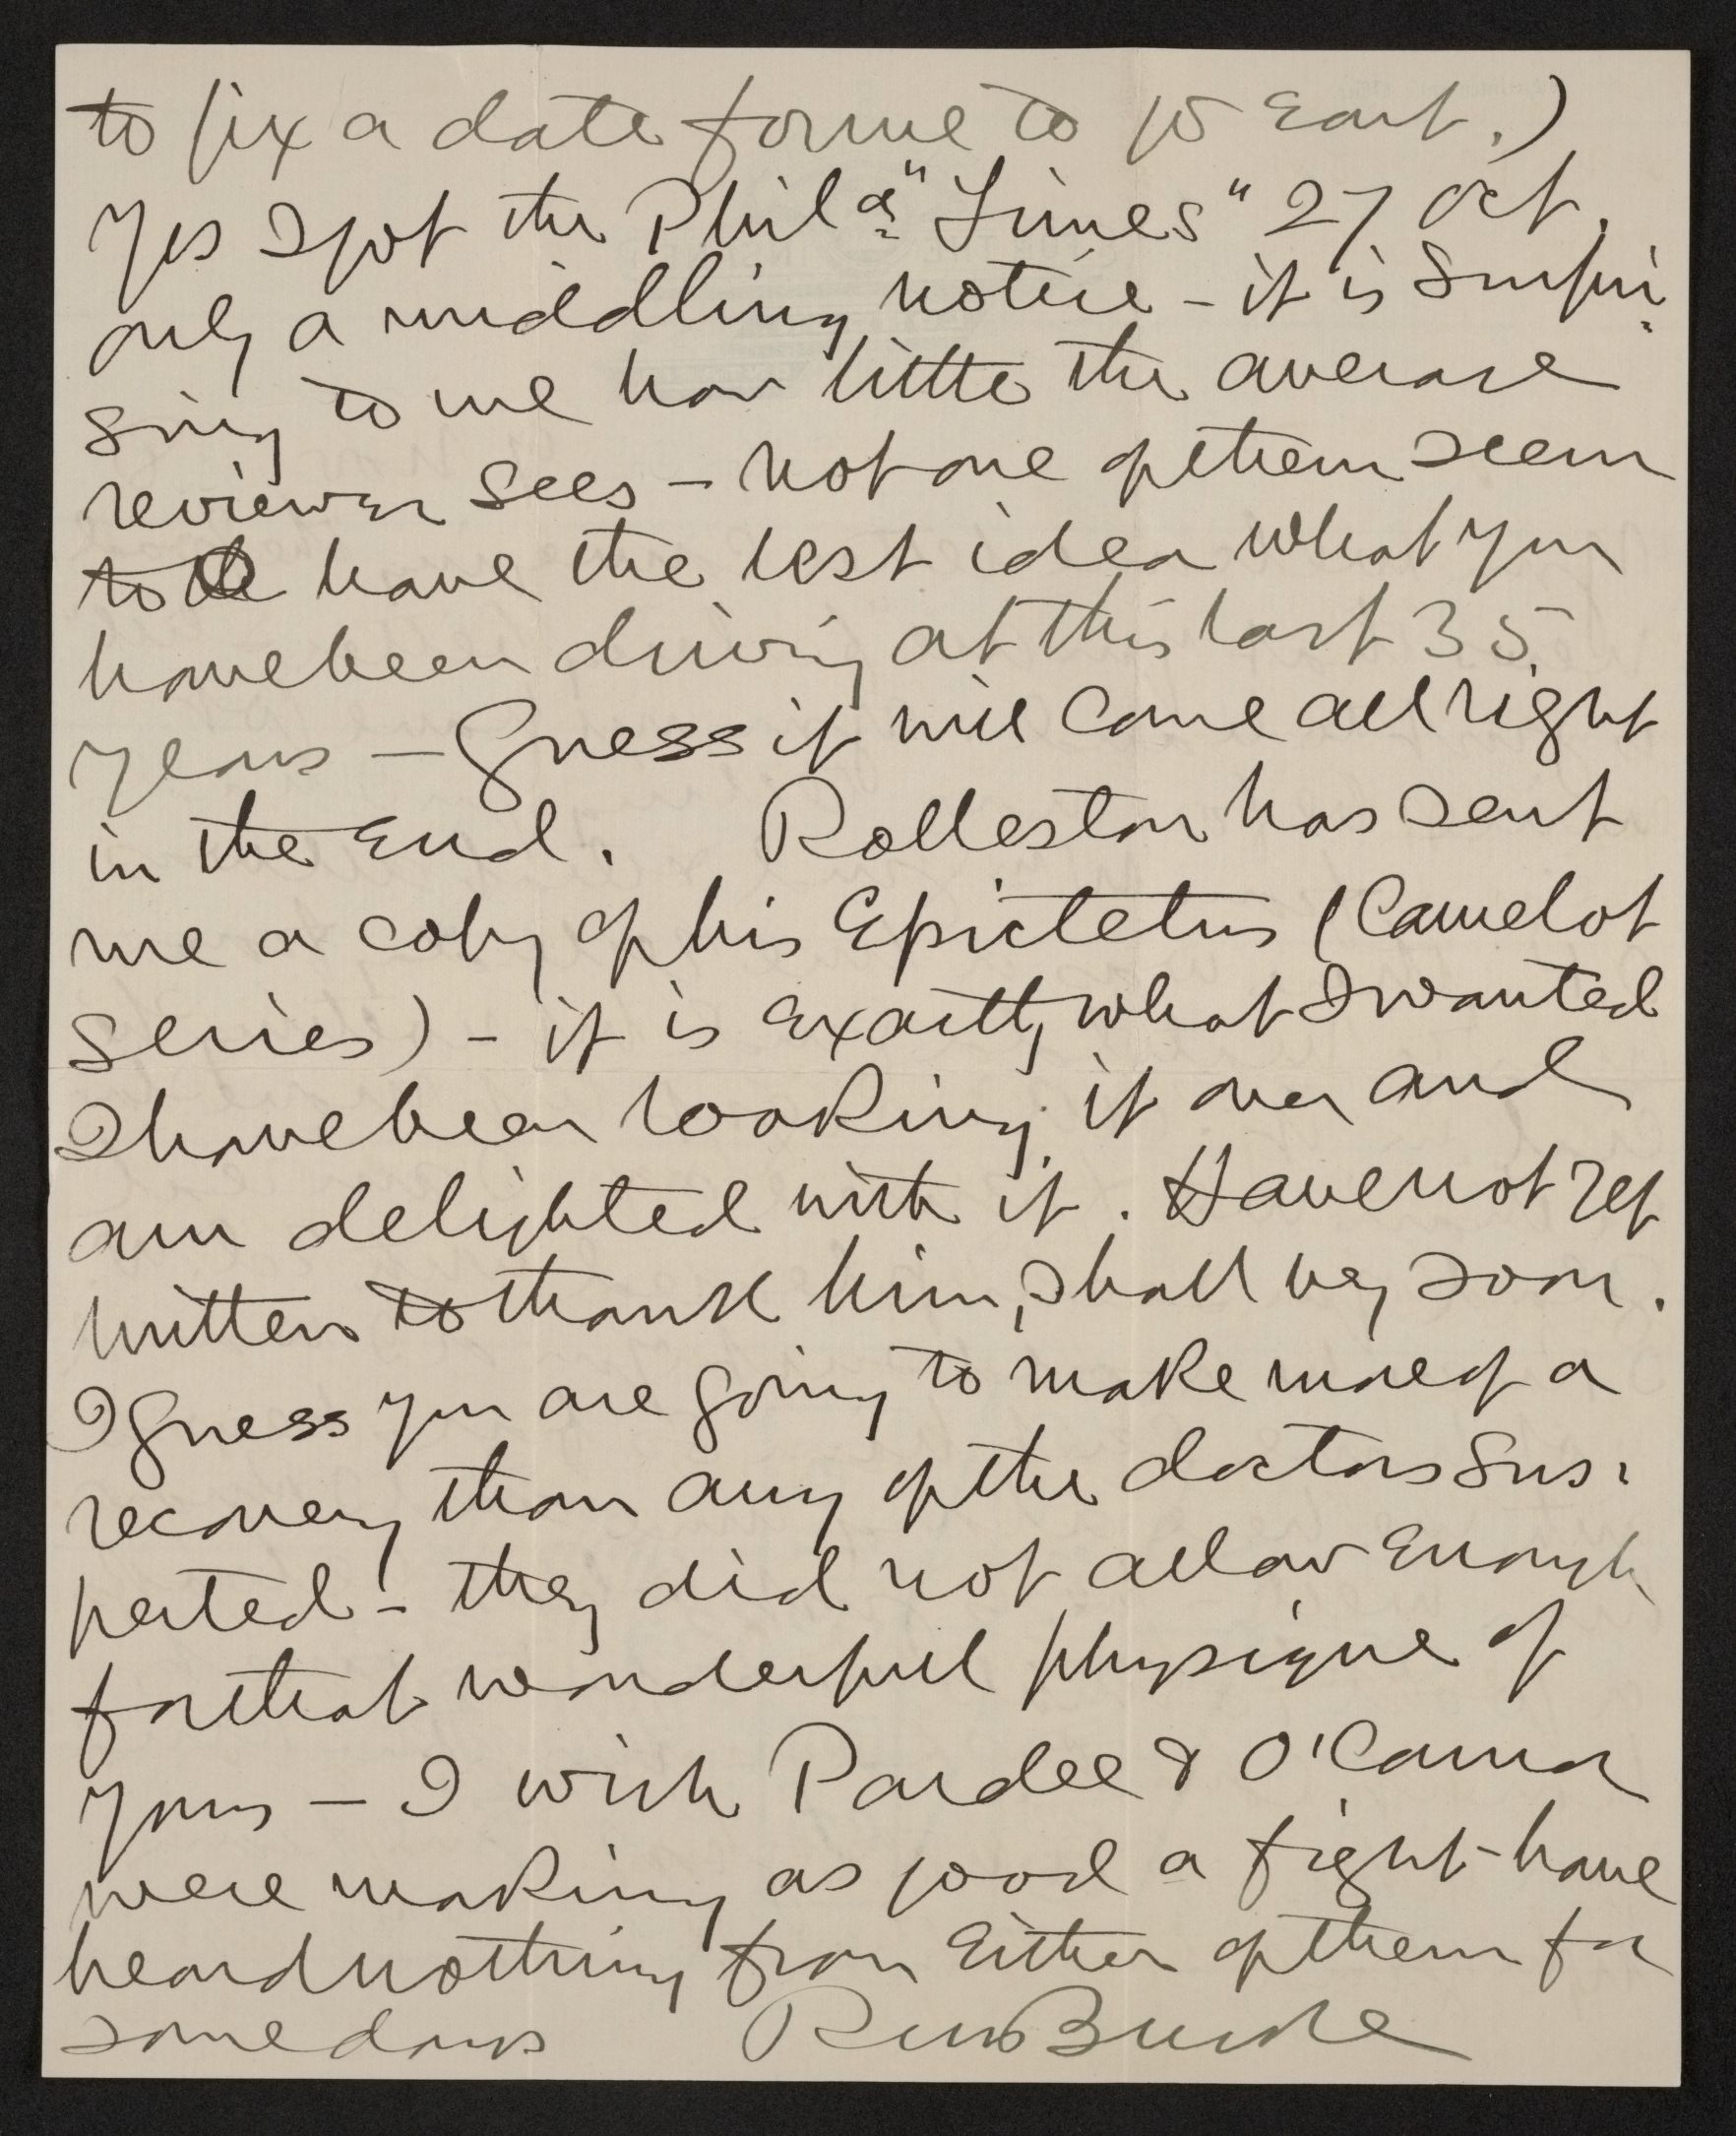 to fix a date for me to go East.)
Yes I got the Phila "Times" 27 Oct.
only a middling notice – it is surpri-
sing to me how little the average
reviewer sees – not one of them seem
to have the lest idea what you
have been driving at this last 35
years – Guess it will come all right
in the End. Rolleston has sent
me a copy of his Epictetus (Camelot
series) – it is Exactly what I wanted
I have been looking it over and
am delighted with it. Have not yet
written to thank him, shall very soon.
I guess you are going to make more of a
recovery than any of the doctors sus-
pected – they did not allow Enough
for that wonderful physique of
yours – I wish Pardee & O'Connor
were making as good a fight – have
heard nothing from Either of them for
some days RM Bucke